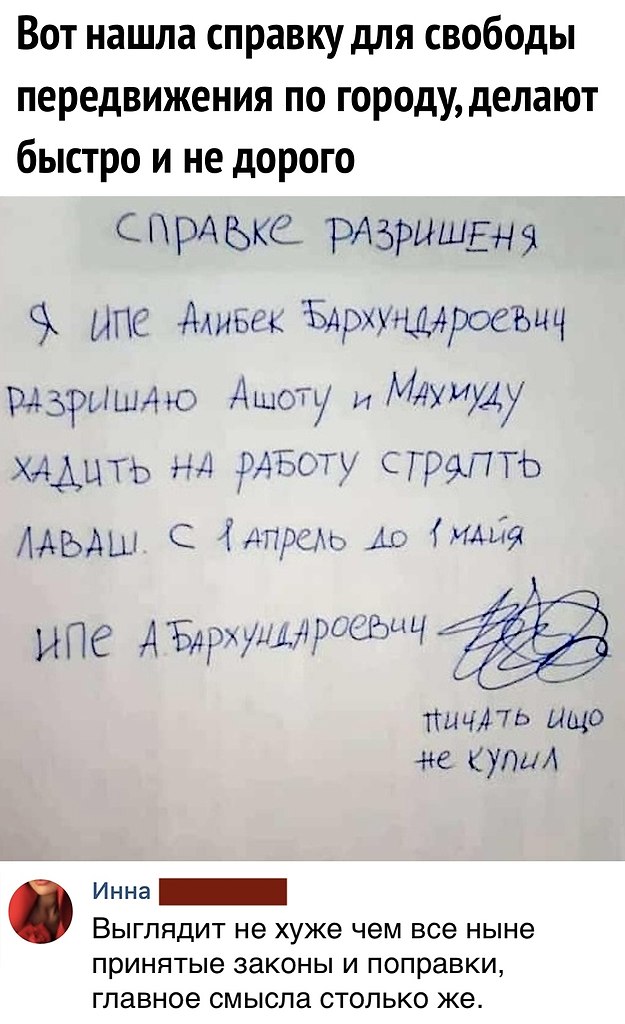 Вот нашла справку для свободы
передвижения по городу, делают
быстро и не дорого
СПРАВКЕ РАЗРИШЕНЯ
Я ИПЕ АЛИБЕК БАРХУНДАРОЕВИЧ
РАЗРИШАЮ АШОТУ и МАХМУДУ
ХАДИТЬ НА РАБОТУ СТРЯПТЬ
ЛАВАШ. С 1 АПРЕЛЬ ДО 1 МАЙЯ
ИПЕ А.БАРХУНДАРОЕВИЧ
ПИЧАТЬ ИЩО
НЕ КУПИЛ
Инна
Выглядит не хуже чем все ныне
принятые законы и поправки,
главное смысла столько же.